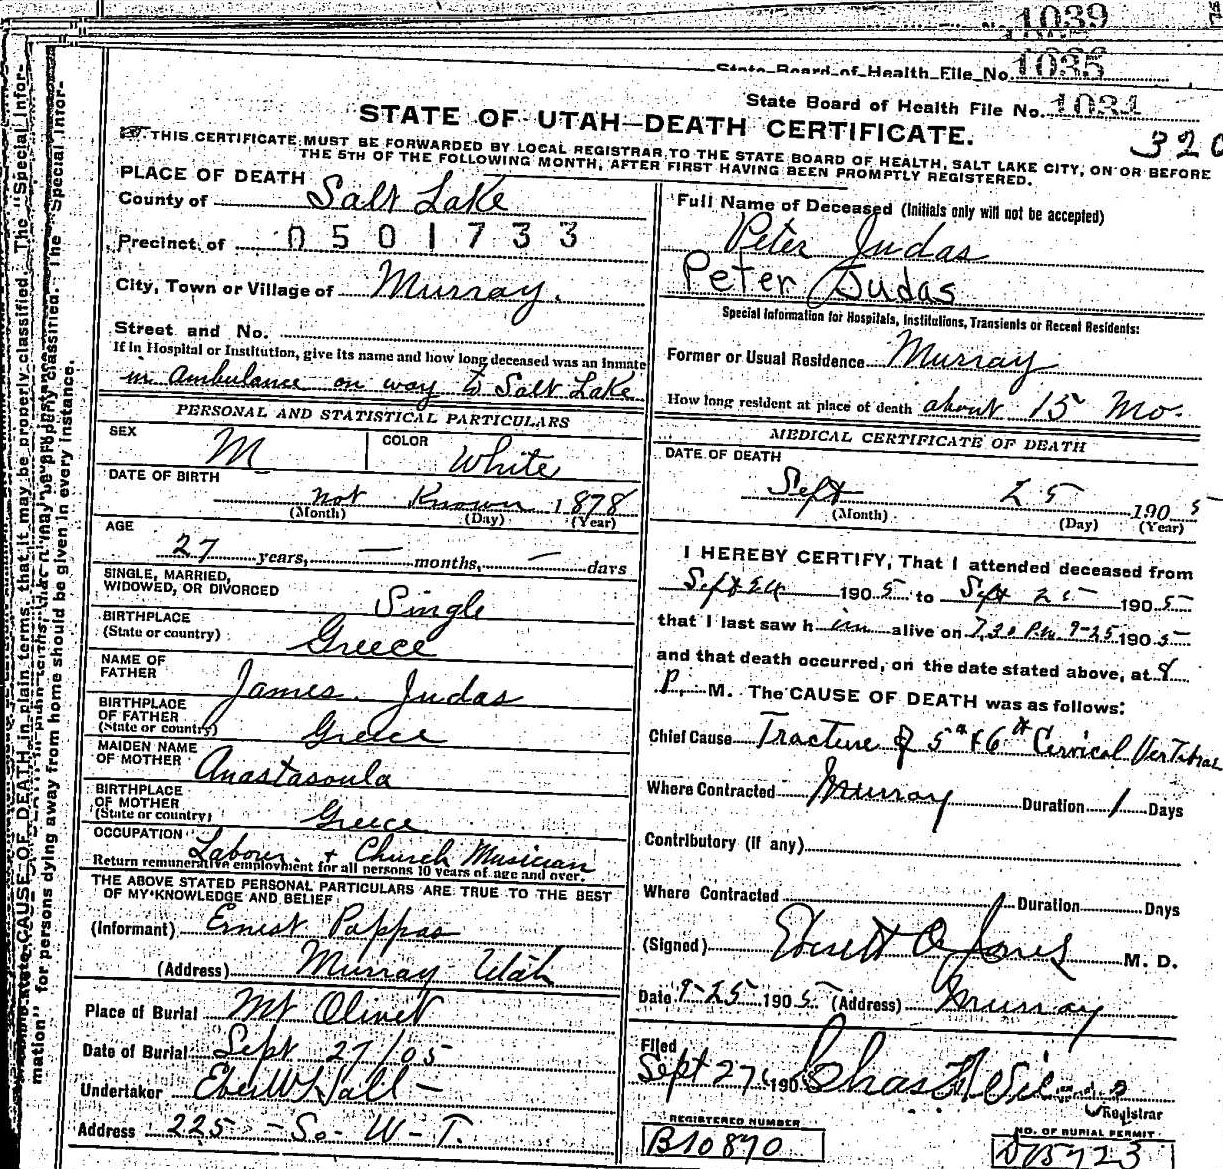 1039
State Board of Health File No. 1035
State Board of Health File No. 1034
STATE OF UTAH—DEATH CERTIFICATE.
320
THIS CERTIFICATE MUST BE FORWARDED BY LOCAL REGISTRAR TO THE STATE BOARD OF HEALTH, SALT LAKE CITY, ON OR BEFORE
THE 5TH OF THE FOLLOWING MONTH, AFTER FIRST HAVING BEEN PROMPTLY REGISTERED.
PLACE OF DEATH
County of Salt Lake
Precinct of 0501733
City, Town or Village of Murray.
Street and No.
If in Hospital or Institution, give its name and how long deceased was an inmate
in Ambulance on way to Salt Lake
PERSONAL AND STATISTICAL PARTICULARS
SEX M COLOR White
DATE OF BIRTH
not Known 1878
(Month) (Day) (Year)
AGE
27 years, — months, — days
SINGLE, MARRIED,
WIDOWED, OR DIVORCED Single
BIRTHPLACE
(State or country) Greece
NAME OF
FATHER James Judas
BIRTHPLACE
OF FATHER
(State or country) Greece
MAIDEN NAME
OF MOTHER Anastasoula
BIRTHPLACE
OF MOTHER
(State or country) Greece
OCCUPATION Laborer + Church Musician
Return remunerative employment for all persons 10 years of age and over.
THE ABOVE STATED PERSONAL PARTICULARS ARE TRUE TO THE BEST
OF MY KNOWLEDGE AND BELIEF
(Informant) Ernest Pappas
(Address) Murray Utah
Place of Burial Mt Olivet
Date of Burial Sept 27/05
Undertaker Eber W Hall —
Address 225 - So - W - T.
Full Name of Deceased (Initials only will not be accepted)
Peter Judas
Peter Judas
Special Information for Hospitals, Institutions, Transients or Recent Residents:
Former or Usual Residence Murray
How long resident at place of death about 15 Mo.
MEDICAL CERTIFICATE OF DEATH
DATE OF DEATH
Sept 25 1905
(Month) (Day) (Year)
I HEREBY CERTIFY, That I attended deceased from
Sept 24 1905 to Sept 25 1905
that I last saw him alive on 7,30 P.M. 9-25 1905
and that death occurred, on the date stated above, at 8
P. M. The CAUSE OF DEATH was as follows:
Chief Cause Fracture of 5th & 6th Cervical Vertebrae
Where Contracted Murray Duration 1 Days
Contributory (if any)
Where Contracted Duration Days
(Signed) Everett O Jones M. D.
Date 9-25 1905 (Address) Murray
Filed
Sept 27 190 Chas
Registrar
REGISTERED NUMBER
B10870
NO. OF BURIAL PERMIT
D75723
state CAUSE OF DEATH in plain terms, that it may be properly classified. The "Special Infor-
mation" for persons dying away from home should be given in every instance.